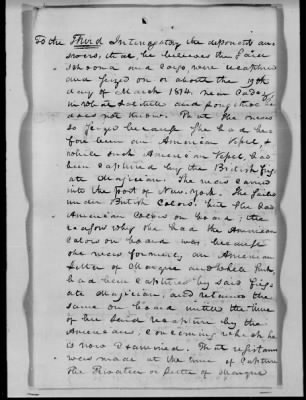 To the Third Interrogatory the deponent ans
swers, that, he believes the said
Schoona and cargo, were recaptured
and seized on or about the 19th
day of March 1814. near
in what latitude and longitude he
does not know. That she was
so seized because she had be
fore been an American Vessel, &
while such American Vessel, had
been captured by the British frig
ate Magician. She was carried
into the port of New-York. She sailed
under British Colors, but she had
American Colors on board; the
reason why she had the American
Colors on board was because
she was formerly an American
letter of Marque and while such
had been captured by said frig
ate Magician, and retained the
same on board until the time
of her said recapture by the
Americans, concerning which he
is now Examined. That resistance
was made at the time of Capture
The Privateer or letter of Marque